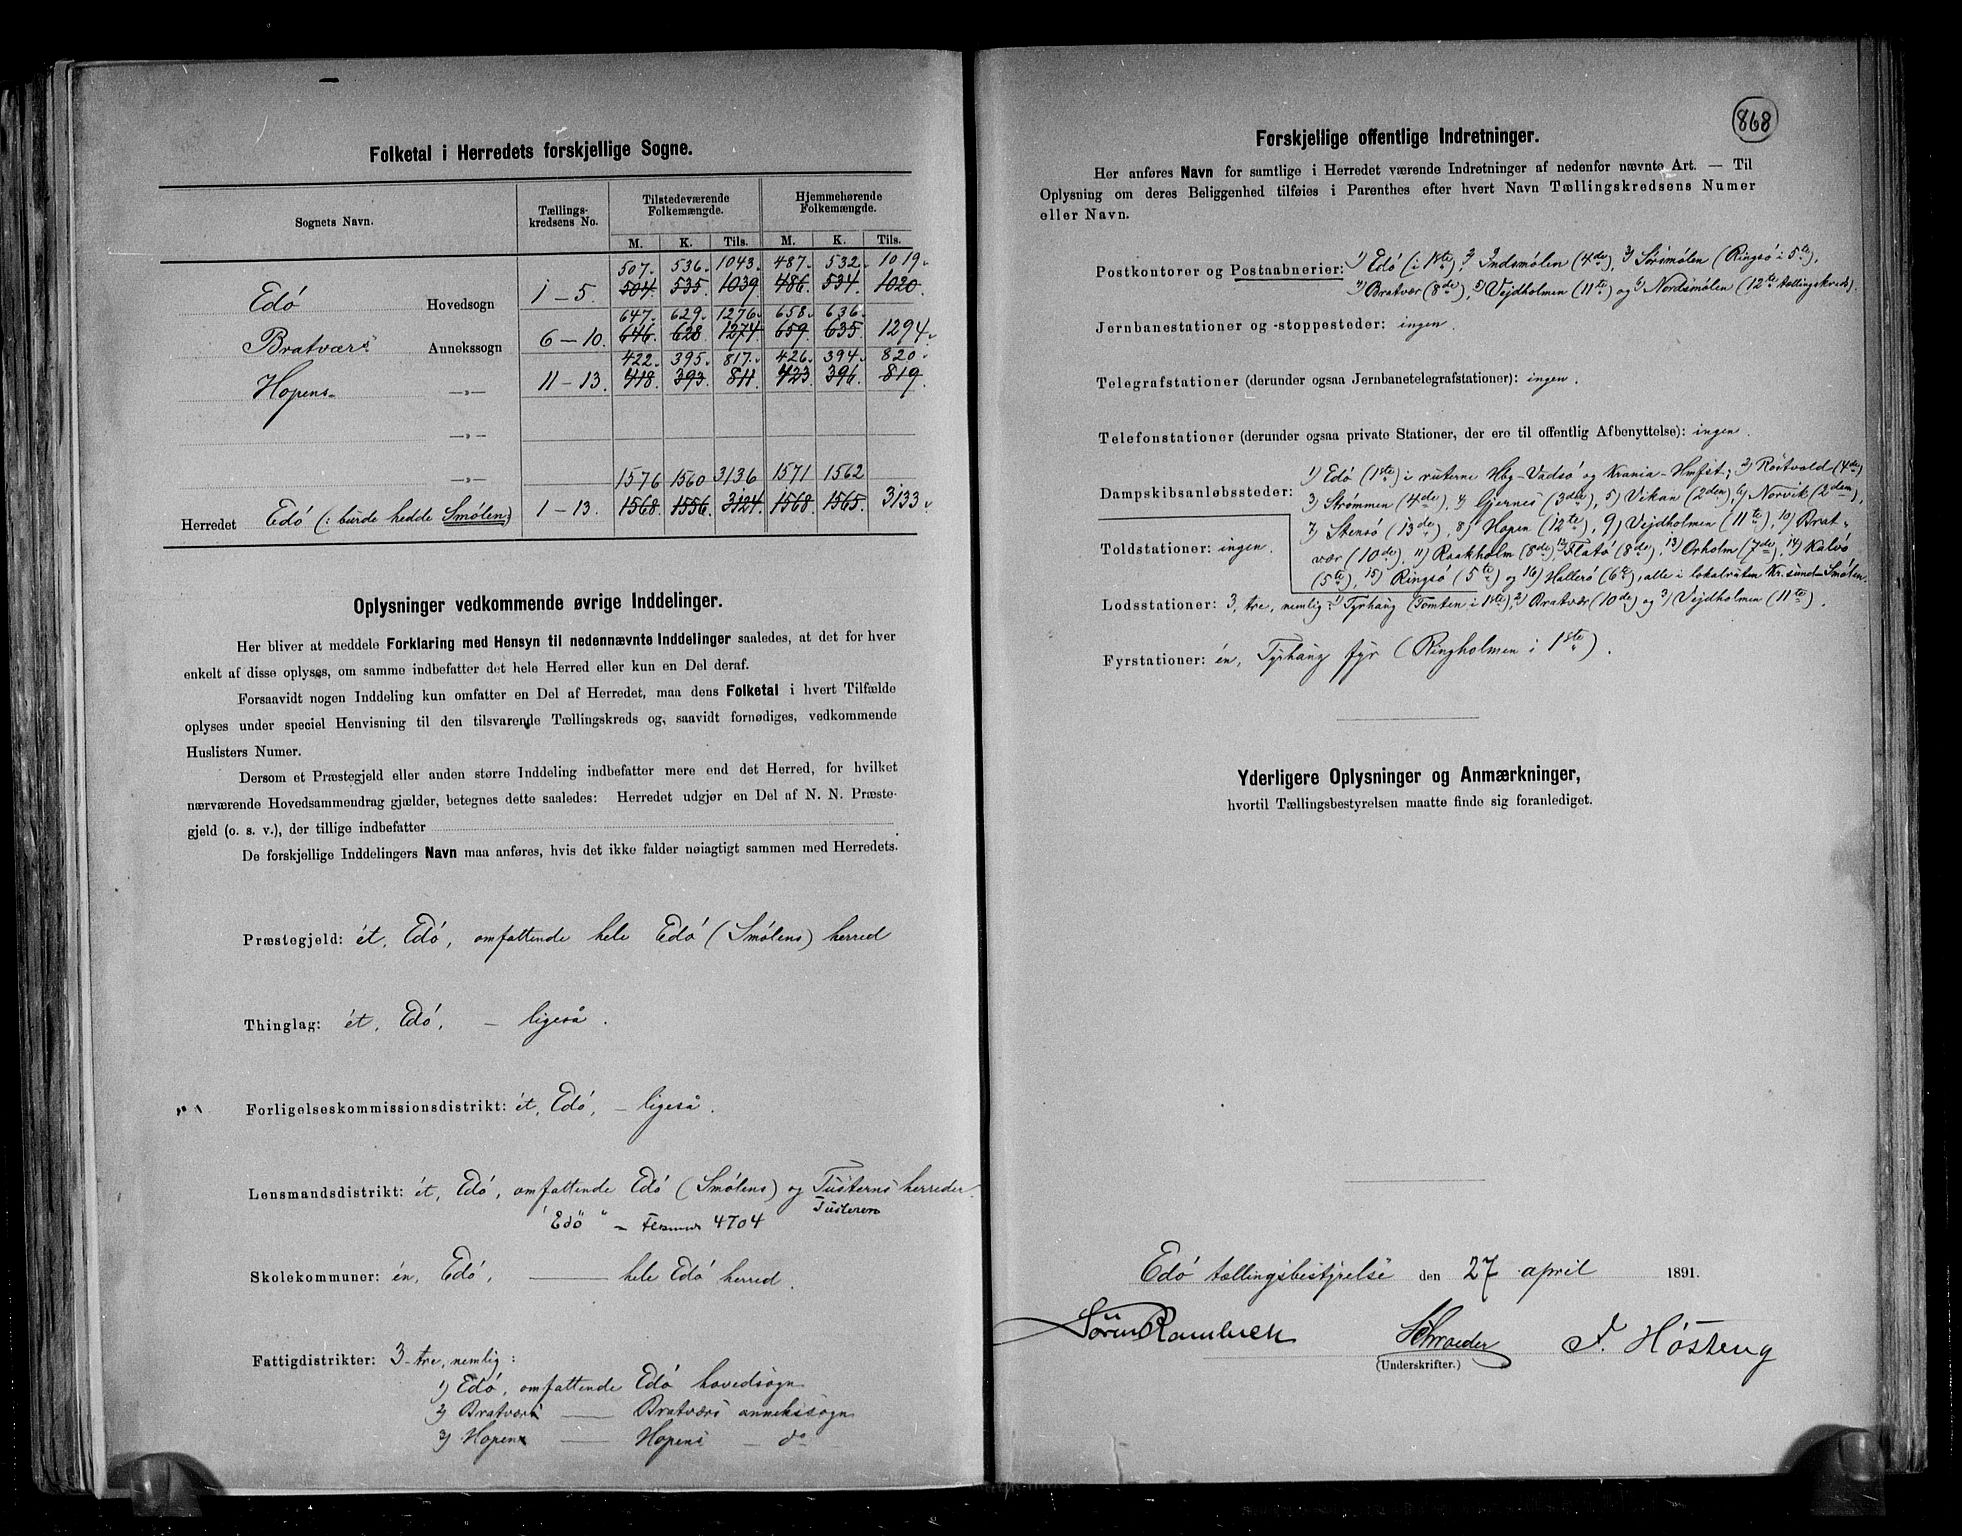 Folketal i Herredets forskjellige Sogne.
Sognets Navn. Tællings-kredsens No. Tilstedeværende Folkemængde. Hjemmehørende Folkemængde.
M. K. Tils. M. K. Tils.
507. 536. 1043. 487. 532. 1019.
Edó Hovedsogn 1 – 5. 504. 535. 1039 486. 534. 1020.
647. 629. 1276. 658. 636.
Bratværs Annekssogn 6 – 10. 646. 628 1274 659. 635. 1294.
422. 395. 817. 426. 394. 820.
Hopens —„— 11 – 13. 418. 393. 811 423 396. 819.
—„—
1576 1560 3136 1571 1562
—„—
Herredet Edó (: burde hedde Smólen) 1 – 13. 1568. 1556. 3124. 1568. 1565. 3133.
Oplysninger vedkommende øvrige Inddelinger.
Her bliver at meddele Forklaring med Hensyn til nedennævnte Inddelinger saaledes, at det for hver
enkelt af disse oplyses, om samme indbefatter det hele Herred eller kun en Del deraf.
Forsaavidt nogen Inddeling kun omfatter en Del af Herredet, maa dens Folketal i hvert Tilfælde
oplyses under speciel Henvisning til den tilsvarende Tællingskreds og, saavidt fornødiges, vedkommende
Huslisters Numer.
Dersom et Præstegjeld eller anden større Inddeling indbefatter mere end det Herred, for hvilket
nærværende Hovedsammendrag gjælder, betegnes dette saaledes: Herredet udgjør en Del af N. N. Præste-
gjeld (o. s. v.), der tillige indbefatter
De forskjellige Inddelingers Navn maa anføres, hvis det ikke falder nøiagtigt sammen med Herredets.
Præstegjeld: ét, Edó, omfattende hele Edó (Smólens) herred
Thinglag: ét, Edó, — ligeså.
Forligelseskommissionsdistrikt: ét, Edó, — ligeså.
Lensmandsdistrikt: ét, Edó, omfattende Edó (Smólens) og Tusterns herreder.
"Edö" – 4704 Tusteren
Skolekommuner: én, Edó, — hele Edó herred
Fattigdistrikter: 3 – tre, nemlig:
1) Edó, omfattende Edó hovedsogn
2) Bratvær — Bratværs annekssogn
3) Hopen — Hopens — do
868
Forskjellige offentlige Indretninger.
Her anføres Navn for samtlige i Herredet værende Indretninger af nedenfor nævnte Art. — Til
Oplysning om deres Beliggenhed tilføies i Parenthes efter hvert Navn Tællingskredsens Numer
eller Navn.
Postkontorer og Postaabnerier: 1) Edó (i 1ste), 2) Indsmólen (4de), 3) Sórsmólen (Ringsó i 5te),
4) Bratvær (8de), 5) Vejdholmen (11te) og 6) Nordsmólen (12te tællingskreds).
Jernbanestationer og -stoppesteder: ingen.
Telegrafstationer (derunder ogsaa Jernbanetelegrafstationer): ingen.
Telefonstationer (derunder ogsaa private Stationer, der ere til offentlig Afbenyttelse): ingen.
1) Edó (1ste) i ruterne Hbg-Vadsó og Krania-Hmfst; 2) Róstvold (4de)
Dampskibsanløbssteder: 3) Strømmen (4de), 4) Gjernes (3die), 5) Vikan (2den), 6) Norvik (2den),
7) Stensó (13de), 8) Hopen (12te), 9) Vejdholmen (11te), 10) Brat-
Toldstationer: ingen. vær (10de), 11) Raakholm (8de), 12) Flató (8de), 13) Orholm (7de), 14) Kalvó
(5te), 15) Ringsó (5te) og 16) Halleró (6te), alle i lokalruten Kr.sund – Smólen.
Lodsstationer: 3, tre, nemlig: 1) Tyrhaug (Tomten i 1ste), 2) Bratvær (10de) og 3) Vejdholmen (11te).
Fyrstationer: én, Tyrhaug fyr (Ringholmen i 1ste).
Yderligere Oplysninger og Anmærkninger,
hvortil Tællingsbestyrelsen maatte finde sig foranlediget.
Edó tællingsbestyrelse den 27 april 1891.
Sören Rambech Schroeder F. Høsteng
(Underskrifter.)